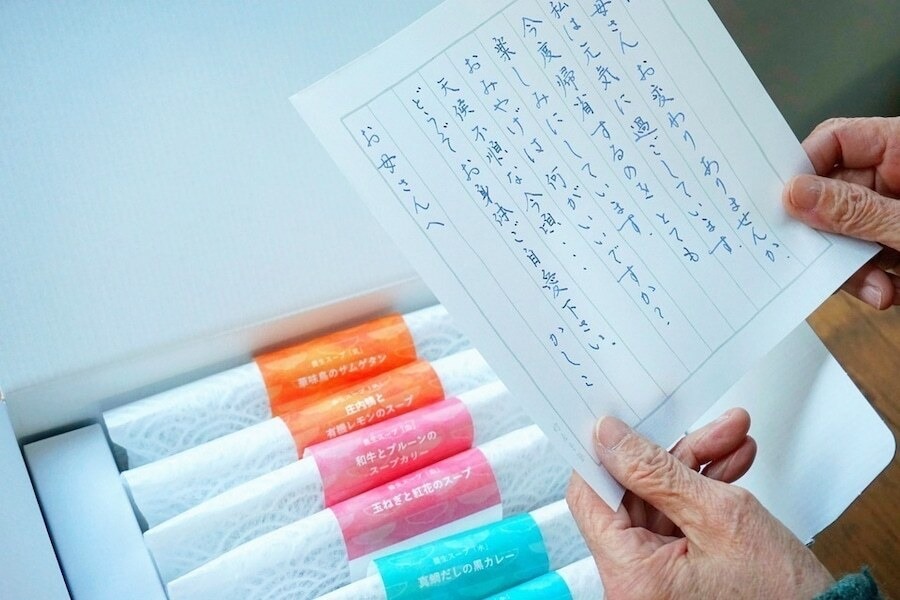 母さん お変わりありませんか.
私は元気に過ごしています.
今度帰省するのを とても
楽しみにしています.
おみやげは 何がいいですか?
天侯不順な今頃‥
どうぞお身体ご自愛下さい.
かしこ
お母さんへ
養生スープ「気」
華味鳥のサムゲタン
庄内鴨と
有機レモンのスープ
和牛とプルーンの
スープカリー
玉ねぎと紅花のスープ
養生スープ「水」
真鯛だしの黒カレー